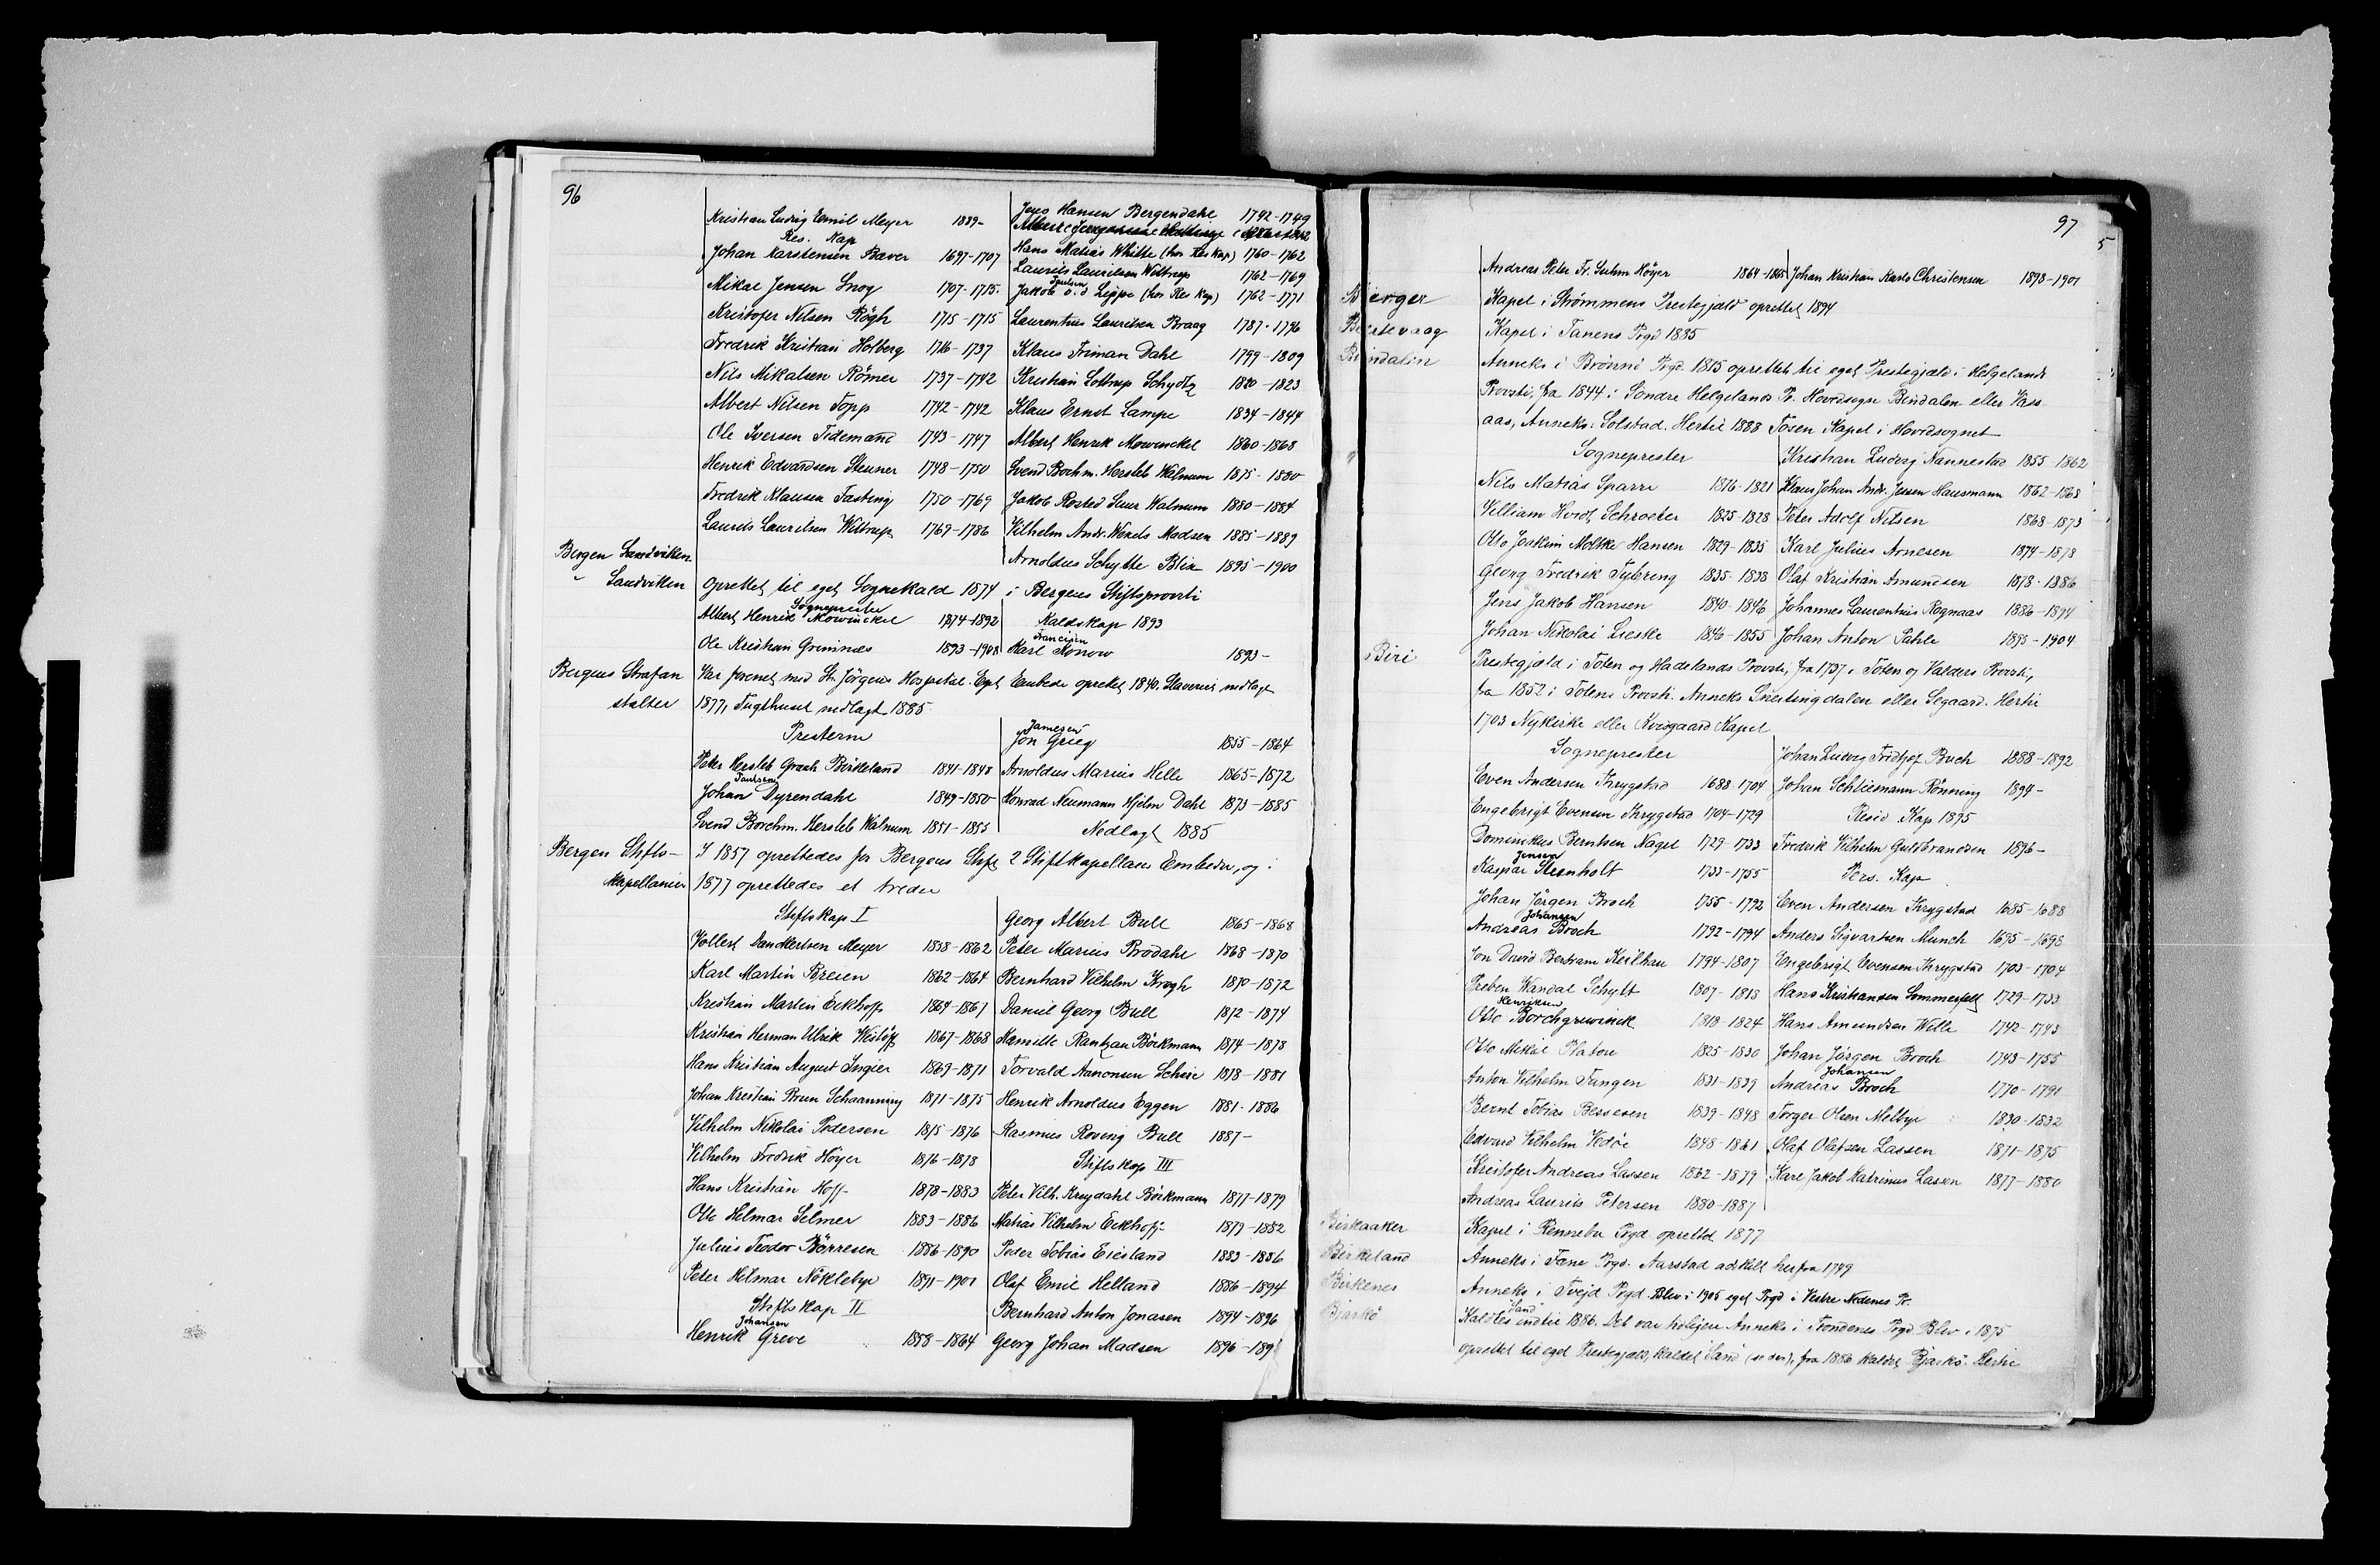 96
Kristian Ludvig Emil Meyer 1889-
Res. Kap
Johan Karstensen Baver 1697-1707
Mikal Jensen Snog 1707-1715
Kristofer Nilsen Rögh 1715-1715
Fredrik Kristian Holberg 1716-1737
Nils Mikalsen Römer 1737-1742
Albert Nilsen Topp 1742-1742
Ole Iversen Tidemand 1743-1747
Henrik Edvardsen Steuner 1748-1750
Fredrik Klausen Fasting 1750-1769
Laurits Lauritsen Wittrup 1769-1786
Jens Hansen Bergendahl 1742-1749
Hans Matias Whitte (hos Res Kap) 1760-1762
Laurits Lauritsen Wittrup 1762-1769
Jakob v. d Lippe (hos Res Kap) 1762-1771
Laurentius Lauritsen Braag 1787-1796
Klaus Friman Dahl 1799-1809
Kristian Lottrup Schydtz 1820-1823
Klaus Ernst Lampe 1834-1844
Albert Henrik Mowinckel 1860-1868
Svend Borchm. Hersleb Walnum 1875-1880
Jakob Rosted Suur Walnum 1880-1884
Vilhelm Andr. Wexels Madsen 1885-1889
Arnoldus Schytte Blix 1895-1900
Bergen Sandviken
" Sandviken oprettet til eget Sognekald 1874 i Bergens Stiftsprovsti
Sogneprester
Albert Henrik Mowinckel 1874-1892
Kaldskap 1893
Ole Kristian Grimnes 1893-1908
Francisen
Karl Konow 1893-
Bergens Strafan Var forenet med St. Jörgens Hospital. Eget Embede oprettet 1840. Slaveriet nedlagt
stalter 1877, Tugthuset nedlagt 1885.
Presterne
Peter Hersleb Graah Birkeland 1841-1848
Paulsen
Johan Dyrendahl 1849-1850
Svend Borchm. Hersleb Walnum 1851-1855
Jamesen
Jon Grieg 1855-1864
Arnoldus Marius Helle 1865-1872
Konrad Neumann Hjelm Dahl 1873-1885
Nedlagt 1885
Bergen Stifts- I 1857 oprettedes for Bergens Stift 2 Stiftkapellaner Embeder, og i
kapellanier 1877 oprettedes et tredie
Stiftskap I
Jollert Danckertsen Meyer 1858-1862
Karl Martin Børesen 1862-1864
Kristian Martin Eckhoff 1864-1867
Kristian Herman Ulrik Wislöff 1867-1868
Hans Kristian August Ingier 1869-1871
Johan Kristian Brun Schaanning 1871-1875
Vilhelm Nikolai Pedersen 1875-1876
Vilhelm Fredrik Höyer 1876-1878
Hans Kristian Hoff 1878-1883
Otto Hilmar Selmer 1883-1886
Julius Teodor Börresen 1886-1890
Peter Hilmar Nöklebye 1891-1901
Stiftskap II
Johansen
Henrik Greve 1858-1864
Georg Albert Bull 1865-1868
Peter Marius Brodahl 1868-1870
Bernhard Vilhelm Krogh 1870-1872
Daniel Georg Bull 1872-1874
Kamillo Rantzau Böckmann 1874-1878
Torvald Aanonsen Schire 1878-1881
Henrik Arnoldus Eggen 1881-1886
Rasmus Roving Bull 1887-
Stiftskap III
Peter Vilh. Kreydahl Böckmann 1877-1879
Matias Vilhelm Eckhoff 1879-1882
Peder Tobias Eiesland 1883-1886
Olaf Emil Helland 1886-1894
Bernhard Anton Jonasen 1894-1896
Georg Johan Madsen 1896-189
97
Andreas Peter Fr. Suhm Höyer 1864-1865
Johan Kristian Karls Christensen 1898-1901
Berger Kapel i Strömmens Prestegjæld oprettet 1894
Berlevaag Kapel i Tanens Prgd 1885
Bindalen Anneks i Brönnö Prgd. 1815 oprettet til eget Prestegjæld i Helgelands
Provsti, fra 1844 i Söndre Helgelands Pr. Hovedsogn Bindalen eller Vass
aas, Anneks: Solstad. Hertil 1888 Tosen Kapel i Hovedsognet
Sogneprester
Nils Matias Sparre 1816-1821
Villiam Hvidt Schroeter 1825-1828
Otto Joakim Moltke Hansen 1829-1835
Georg Fredrik Tybring 1835-1838
Jens Jakob Hansen 1840-1846
Johan Nikolai Lieske 1846-1855
Kristian Ludvig Nannestad 1855-1862
Klaus Johan Andr. Jessen Hausmann 1862-1868
Peter Adolf Nilsen 1868-1873
Karl Julius Arnesen 1874-1878
Olaf Kristian Amundsen 1878-1886
Johannes Laurentius Rognaas 1886-1894
Johan Anton Pahle 1895-1904
Biri Prestegjæld i Toten og Hadelands Provsti, fra 1737 i Toten og Valders Provsti,
fra 1852 i Totens Provsti. Anneks Snertingdalen eller Segaard. Hertil
1703 Nykirke eller Kvisgaard Kapel
Sogneprester
Even Andersen Krygstad 1688-1704
Engebrigt Evensen Krygstad 1704-1729
Dominikus Berntsen Nagel 1729-1733
Jensen
Kaspar Steenholt 1733-1755
Johan Jörgen Broch 1755-1792
Johansen
Andreas Broch 1792-1794
Jon David Bertram Keilhau 1794-1807
Preben Wandal Schytt 1807-1818
Henriksen
Otto Borchgrewinck 1818-1824
Otto Mikkel Platou 1825-1830
Anton Vilhelm Fangen 1831-1839
Bernt Tobias Bessesen 1839-1848
Edvard Vilhelm Vedöe 1848-1861
Kristofer Andreas Lassen 1862-1879
Andreas Laurits Petersen 1880-1887
Johan Ludvig Fridtjof Buch 1888-1892
Johan Schliemann Rönning 1894-
Resid Kap 1895
Fredrik Vilhelm Guldbrandsen 1896-
Pers. Kap
Even Andersen Krygstad 1685-1688
Anders Sigvartsen Munch 1695-1698
Engebrigt Evensen Krygstad 1703-1704
Hans Kristiansen Sommerfelt 1729-1733
Hans Amundsen Wille 1742-1743
Johan Jörgen Broch 1743-1755
Johansen
Andreas Broch 1770-1791
Torger Olsen Melbye 1830-1832
Olaf Olafsen Lassen 1871-1875
Karl Jakob Katrinus Lassen 1877-1880
Birkaaker Kapel i Rennebu Prgd oprettet 1877
Birkeland Anneks i Fane Prgd. Aarstad adskilt herfra 1749
Birkenes Anneks i Tvejd Prgd. Blev i 1905 eget Prgd i Vestre Nedenes Pr.
Bjarkö Kaldtes Sand indtil 1886. Det var tidligere Anneks i Trondenes Prgd Blev i 1875
oprettet til eget Prestegjæld, kaldet Sand (se det), fra 1886 kaldet Bjarkö. Hertil